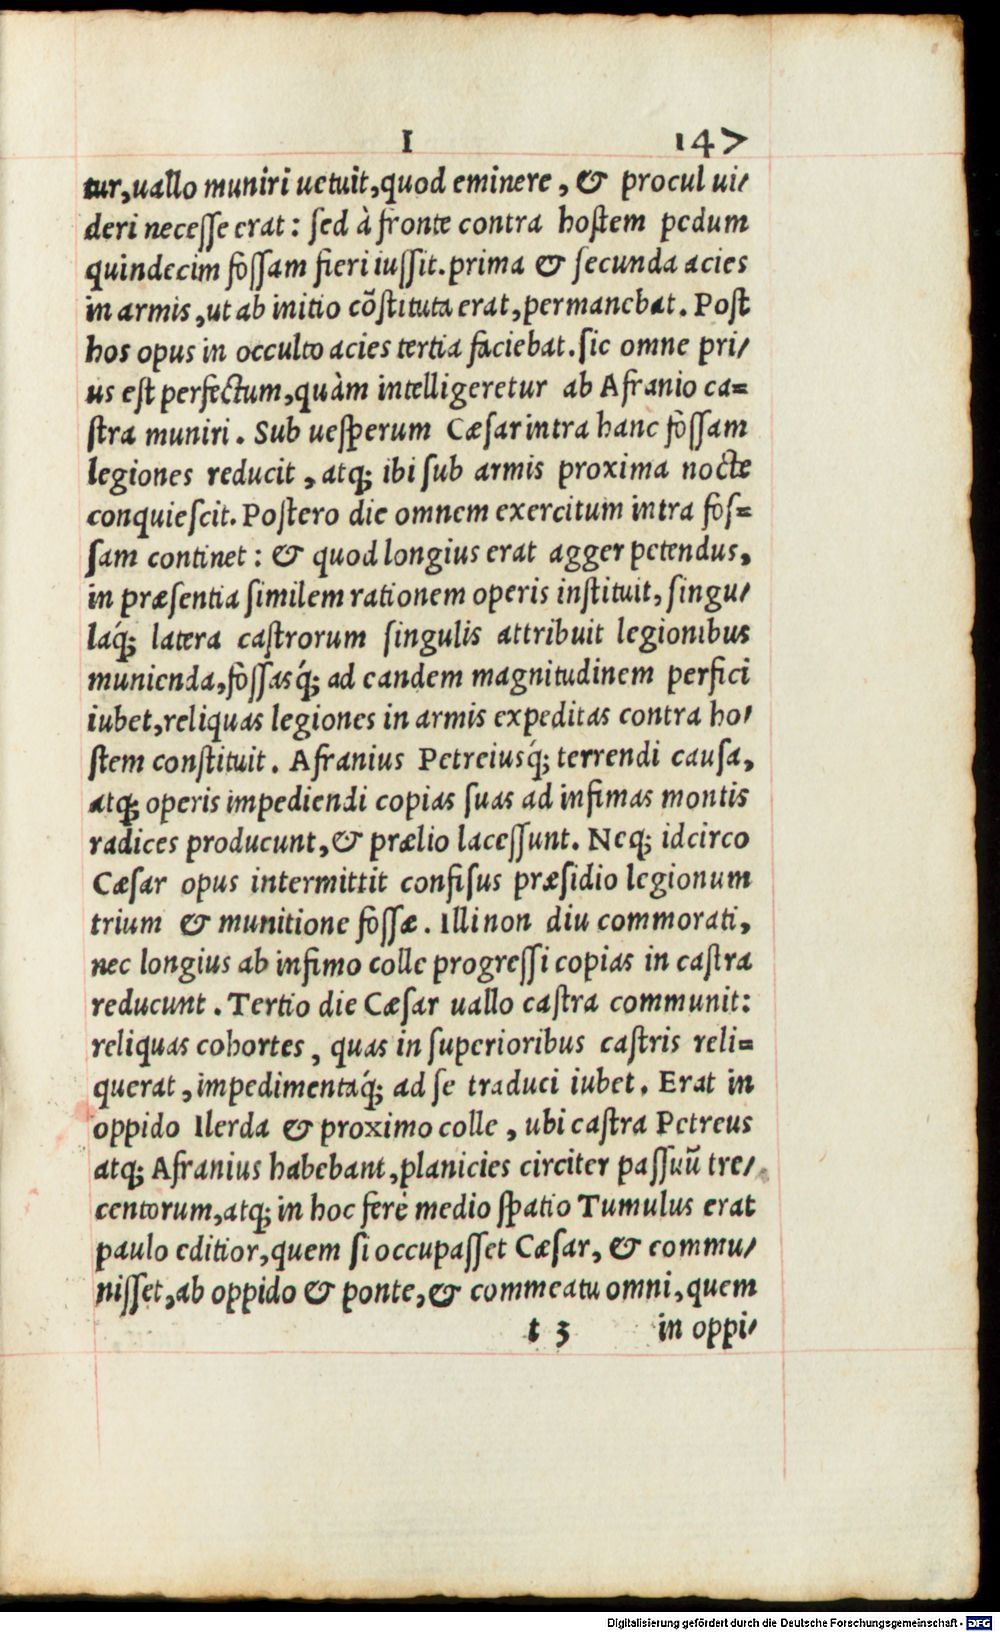 I 147
tur, uallo muniri uetuit, quod eminere, & procul ui/
deri necesſe erat: ſed à fronte contra hoſtem pedum
quindecim foſſam fieri iuſsit. prima & ſecunda acies
in armis, ut ab initio cõſtituta erat, permanebat. Poſt
hos opus in occulto acies tertia faciebat. ſic omne pri/
us eſt perfectum, quàm intelligeretur ab Afranio ca=
ſtra muniri. Sub ueſperum Cæſar intra hanc foſſam
legiones reducit, atq; ibi ſub armis proxima nocte
conquieſcit. Poſtero die omnem exercitum intra foſ=
ſam continet: & quod longius erat agger petendus,
in præſentia ſimilem rationem operis inſtituit, ſingu/
laq́; latera caſtrorum ſingulis attribuit legionibus
munienda, foſſasq́; ad eandem magnitudinem perfici
iubet, reliquas legiones in armis expeditas contra ho/
ſtem conſtituit. Afranius Petreiusq́; terrendi cauſa,
atq; operis impediendi copias ſuas ad infimas montis
radices producunt, & prælio laceſſunt. Neq; idcirco
Cæſar opus intermittit confiſus præſidio legionum
trium & munitione foſſæ. Illi non diu commorati,
nec longius ab infimo colle progreſſi copias in caſtra
reducunt. Tertio die Cæſar uallo caſtra communit:
reliquas cohortes, quas in ſuperioribus caſtris reli=
querat, impedimentaq́; ad ſe traduci iubet. Erat in
oppido Ilerda & proximo colle, ubi caſtra Petreus
atq; Afranius habebant, planicies circiter paſſuũ tre/
centorum, atq; in hoc ferè medio ſpatio Tumulus erat
paulo editior, quem ſi occupaſſet Cæſar, & commu/
niſſet, ab oppido & ponte, & commeatu omni, quem
t 3 in oppi/
Digitalisierung gefördert durch die Deutsche Forschungsgemeinschaft - DFG